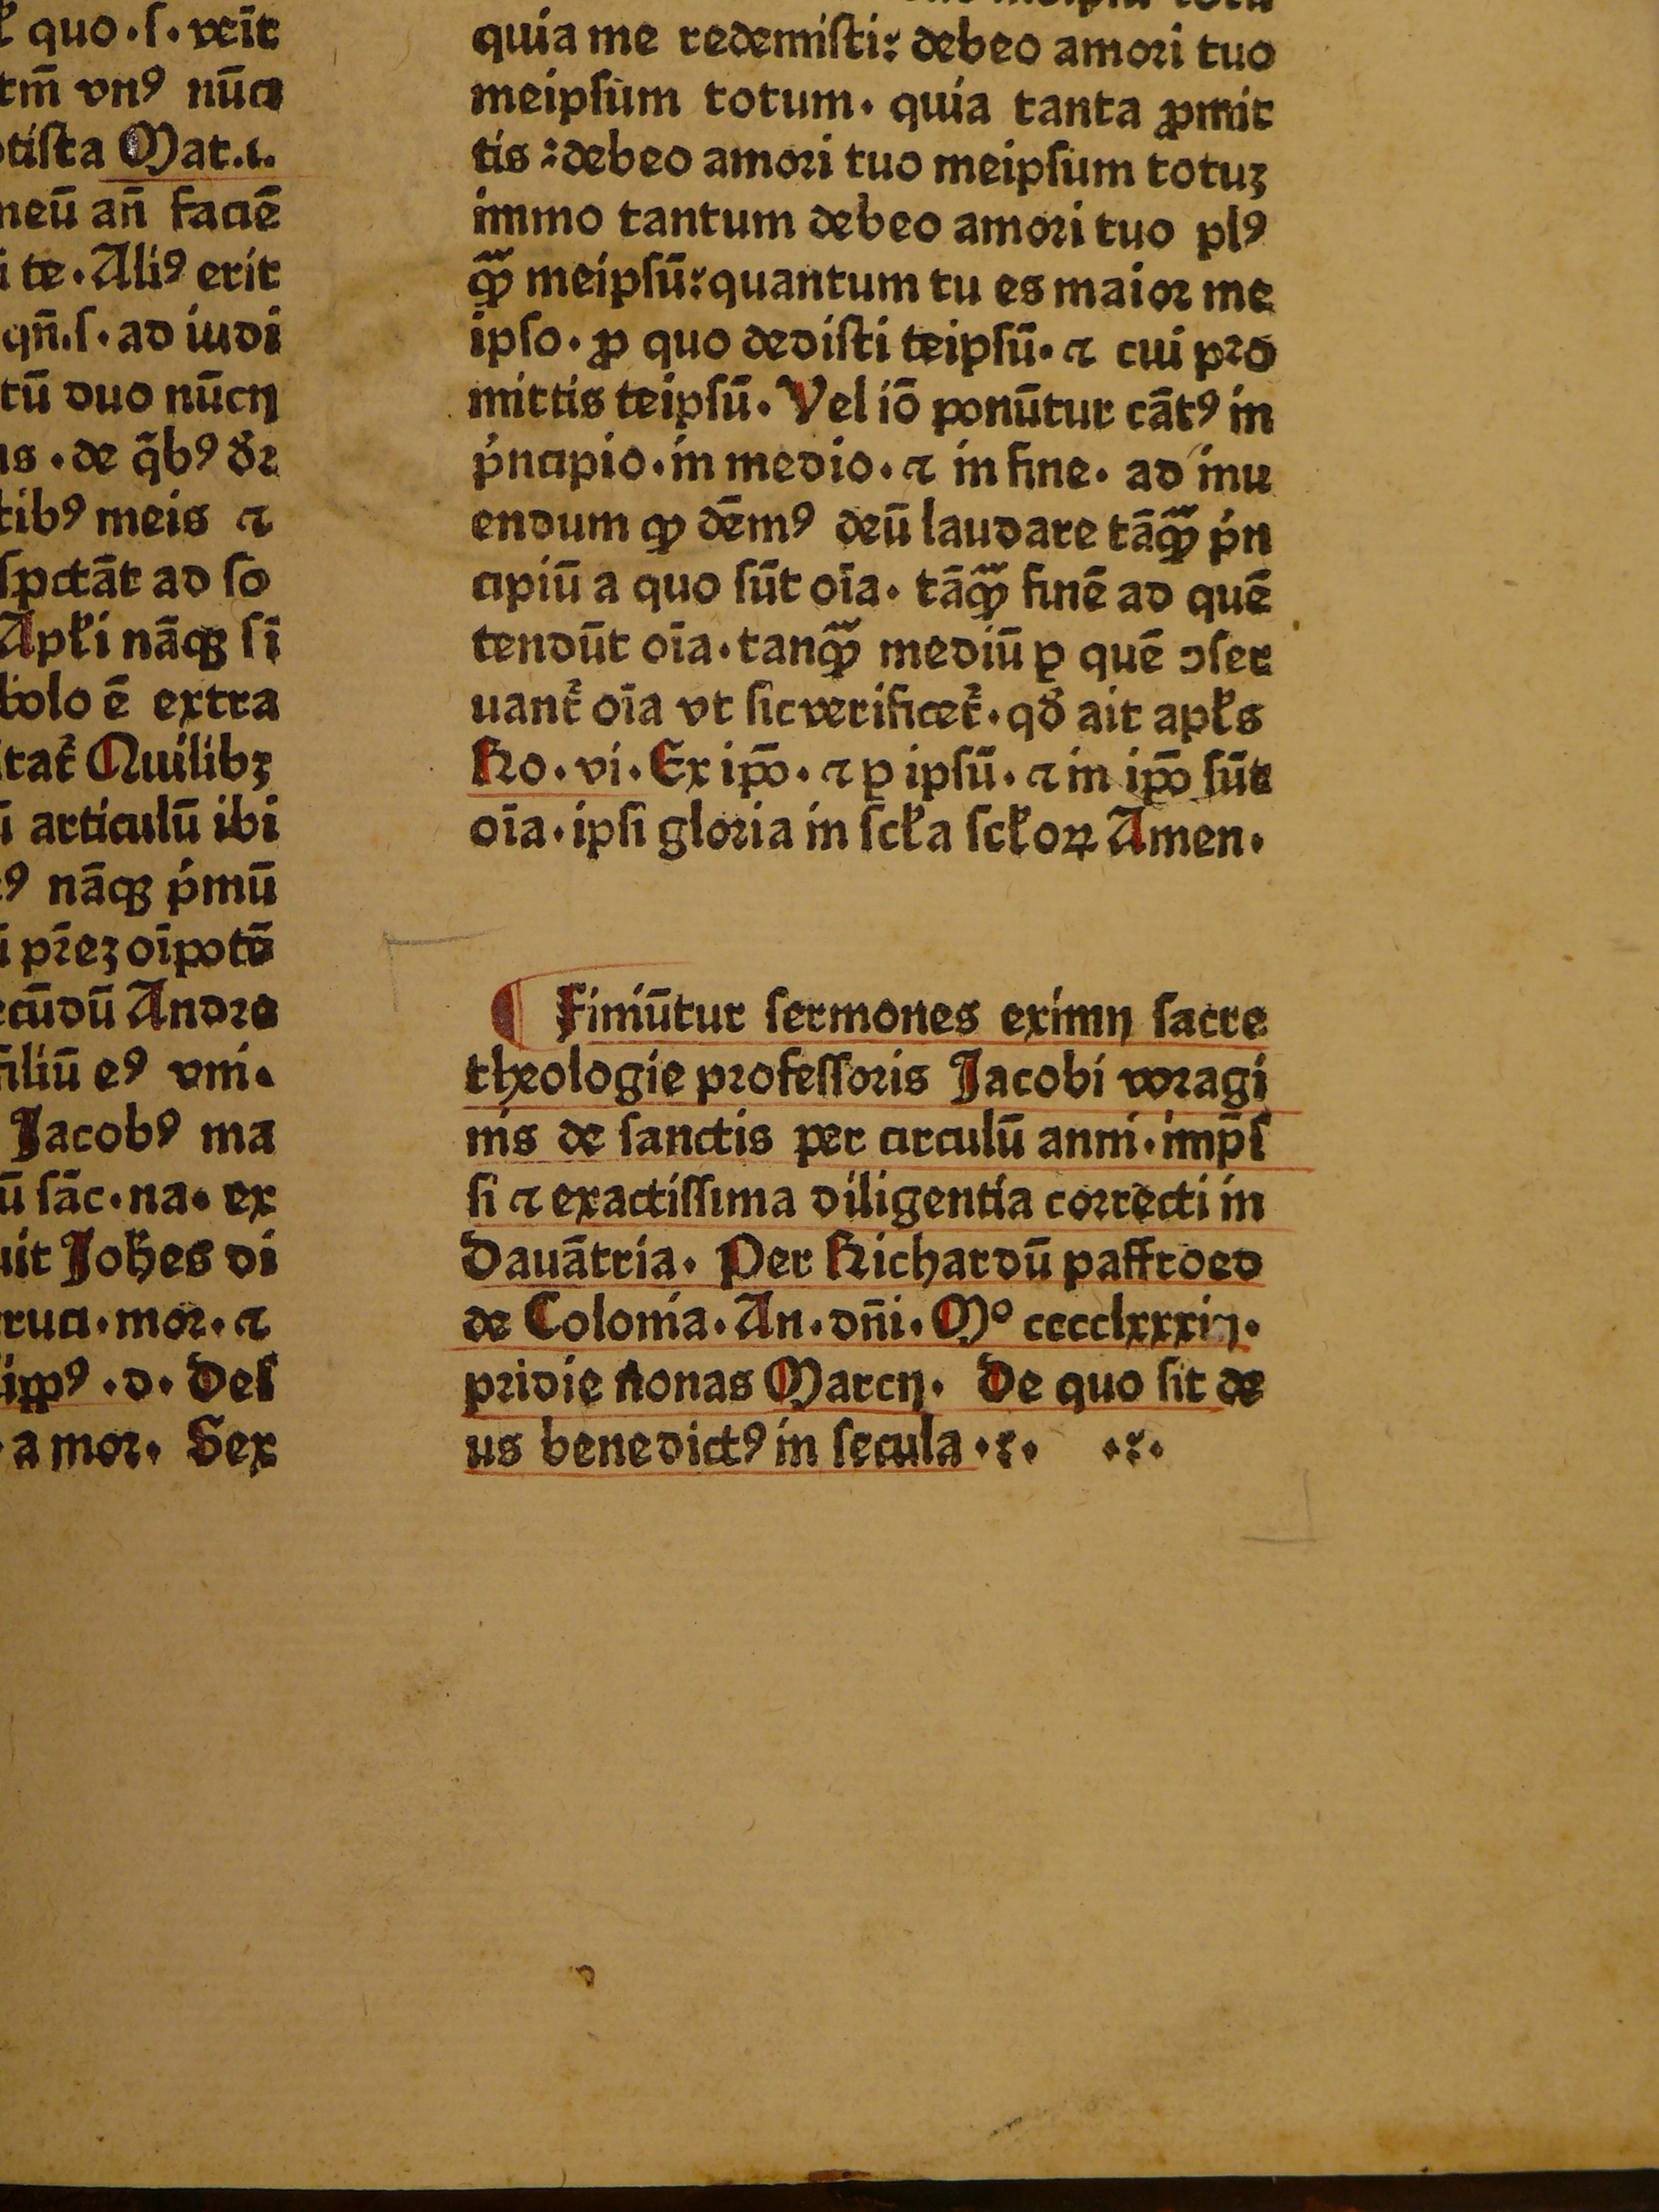 quo .ſ. veīt
tm̄ vnꝰ nūci
tiſta Mat.i.
neū an̄ faciē
te. Aliꝰ erit
qn̄.ſ. ad iudi
tū duo nūcij
us. de q̄bꝰ dꝛ
tibꝰ meis ⁊
ſpctāt ad ſo
Apƚi nāqꝫ ſi
bolo ē extra
Quilibꝫ
articulū ibi
nāqꝫ pͥmū
pꝛ̄eꝫ oīpotē
cūdū Andre
filiū eꝰ vni.
Jacobꝰ ma
ū ſāc. na. ex
uit Joħes di
cruci. moꝛ. ⁊
.d. Deſ
a moꝛ. Sex
quia me redemiſti: debeo amoꝛi tuo
meipſum totum. quia tanta ꝓmit
tis: debeo amoꝛi tuo meipſum totuꝫ
immo tantum debeo amoꝛi tuo plꝰ
qͣꝫ meipſū: quantum tu es maioꝛ me
ipſo. ꝓ quo dediſti teipſū. ⁊ cui pꝛo
mittis teipſū. Vel iō ponūtur cātꝰ in
pͥncipio. in medio. ⁊ in fine. ad inu
endum ꝙ dēmꝰ deū laudare tāqͣꝫ pͥn
cipiū a quo ſūt oīa. tāqͣꝫ finē ad quē
tendūt oīa. tanqͣꝫ mediū ꝑ quē ↄſer
uant᷑ oīa vt ſic verificet᷑. qd̓ ait apƚs
Ro. vi. Ex ip̄o. ⁊ ꝑ ipſū. ⁊ in ip̄o ſūt
oīa. ipſi gloꝛia in ſcƚa ſcƚoꝝ Amen.
¶ Finiūtur ſermones eximij ſacre
theologie pꝛofeſſoꝛis Jacobi voꝛagi
nis de ſanctis per circulū anni. imp̄ſ
ſi ⁊ exactiſſima diligentia coꝛrecti in
Dauātria. Per Richardū paffroed
de Colonia. An. dn̄i. Mº cccclxxxiij.
pꝛidie nonas Marcij. De quo ſit de
us benedictꝰ in ſecula .:. .:.